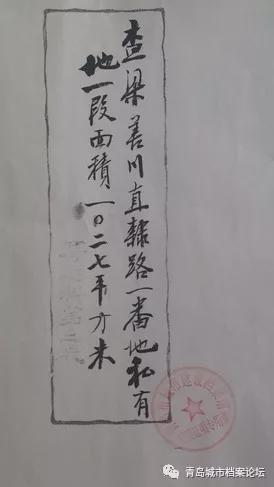 查梁善川直隸路一番地私有
地一段面積一〇二七平方米
青岛城市档案论坛